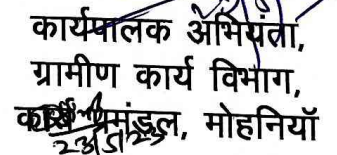 कार्यपालक अभियंता,
ग्रामीण कार्य विभाग,
कार्य प्रमंडल, मोहनियॉ
23/5/23